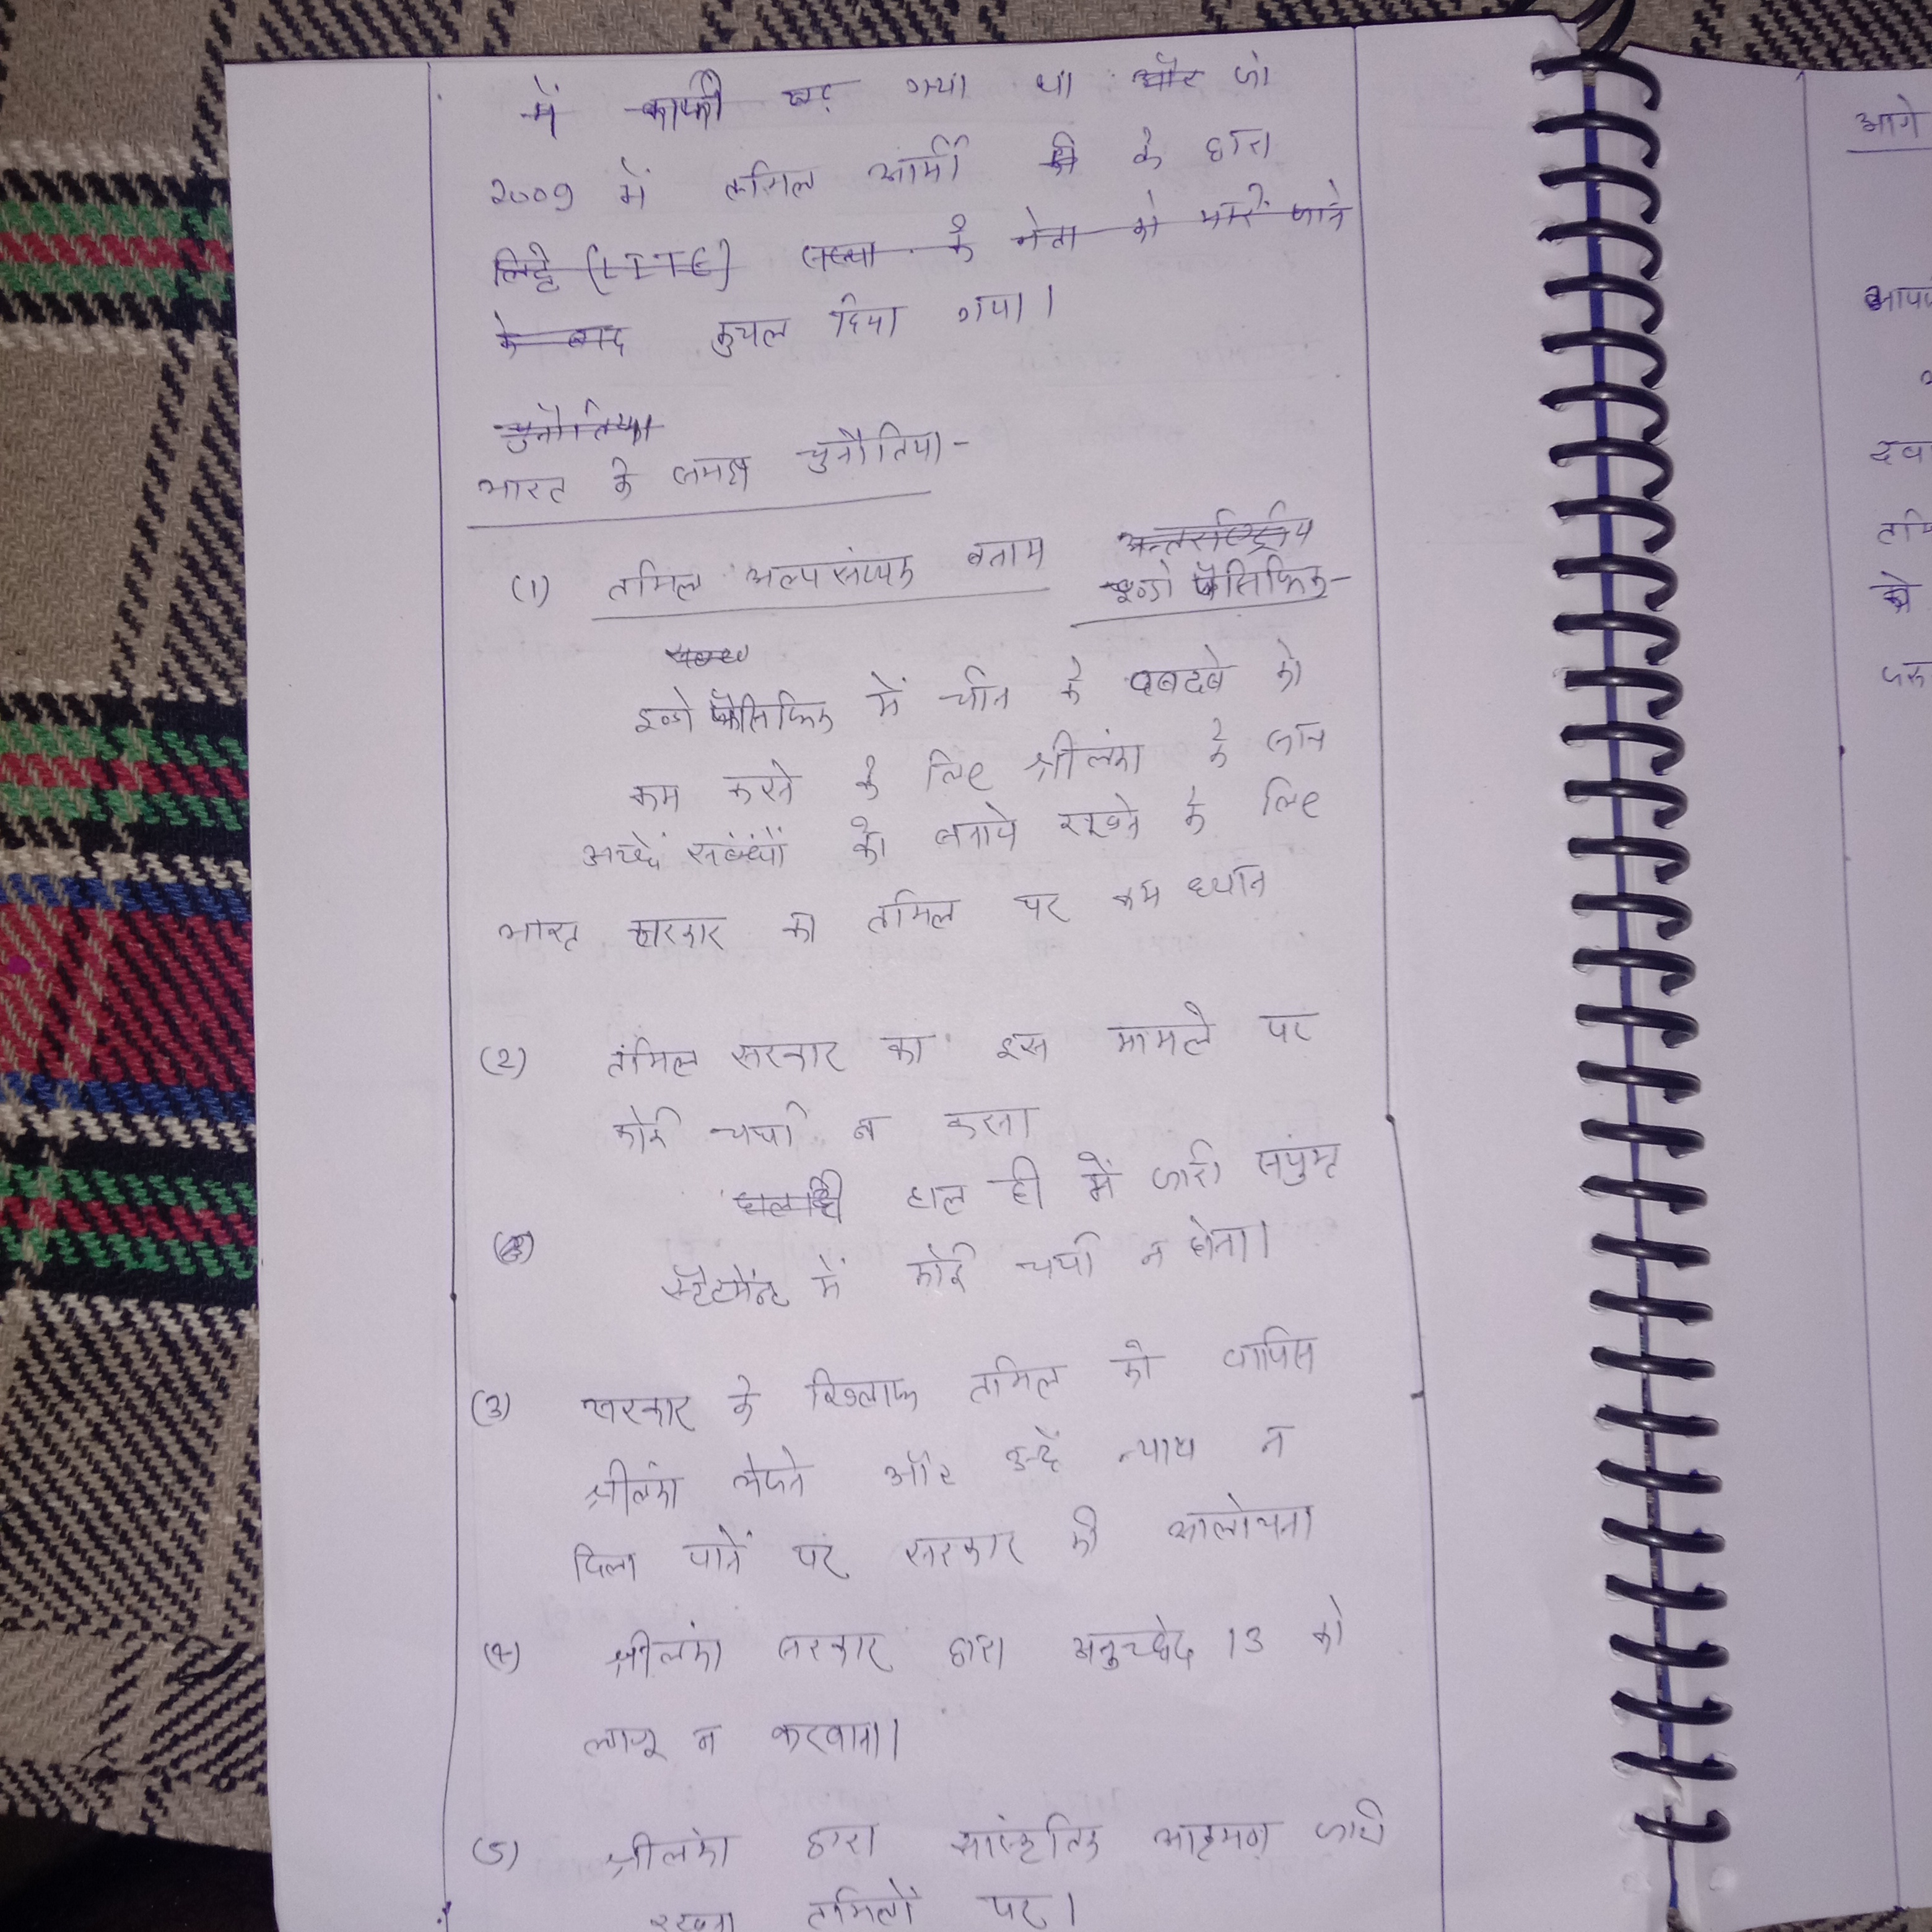 में काफी बढ़ गया था और जो
2009 में तमिल आर्मी की के द्वारा
लिट्टे (LTTE) संस्था के नेता को मारे जाने
के बाद कुचल दिया गया।
चुनौतिया
भारत के समक्ष चुनौतिया-
(1) तमिल अल्पसंख्यक बनाम अन्तर्राष्ट्रीय
इण्डो पैसिफिक-
इण्डो पैसिफिक में चीन के दबदबे को
कम करने के लिए श्रीलंका के साथ
अच्छें संबंधों को बनाये रखने के लिए
भारत सरकार का तमिल पर कम ध्यान
(2) तमिल सरकार का इस मामले पर
कोई चर्चा न करना
हाल ही हाल ही में जारी संयुक्त
(3) स्टेटमेन्ट में कोई चर्चा न होना।
(3) सरकार के खिलाफ तमिल को वापिस
श्रीलंका भेजने और उन्हें न्याय न
दिला पाने पर सरकार की आलोचना
(4) श्रीलंका सरकार द्वारा अनुच्छेद 13 को
लागू न करवाना।
(5) श्रीलंका द्वारा सांस्कृतिक आक्रमण जारी
रखना तमिलों पर।
आगे